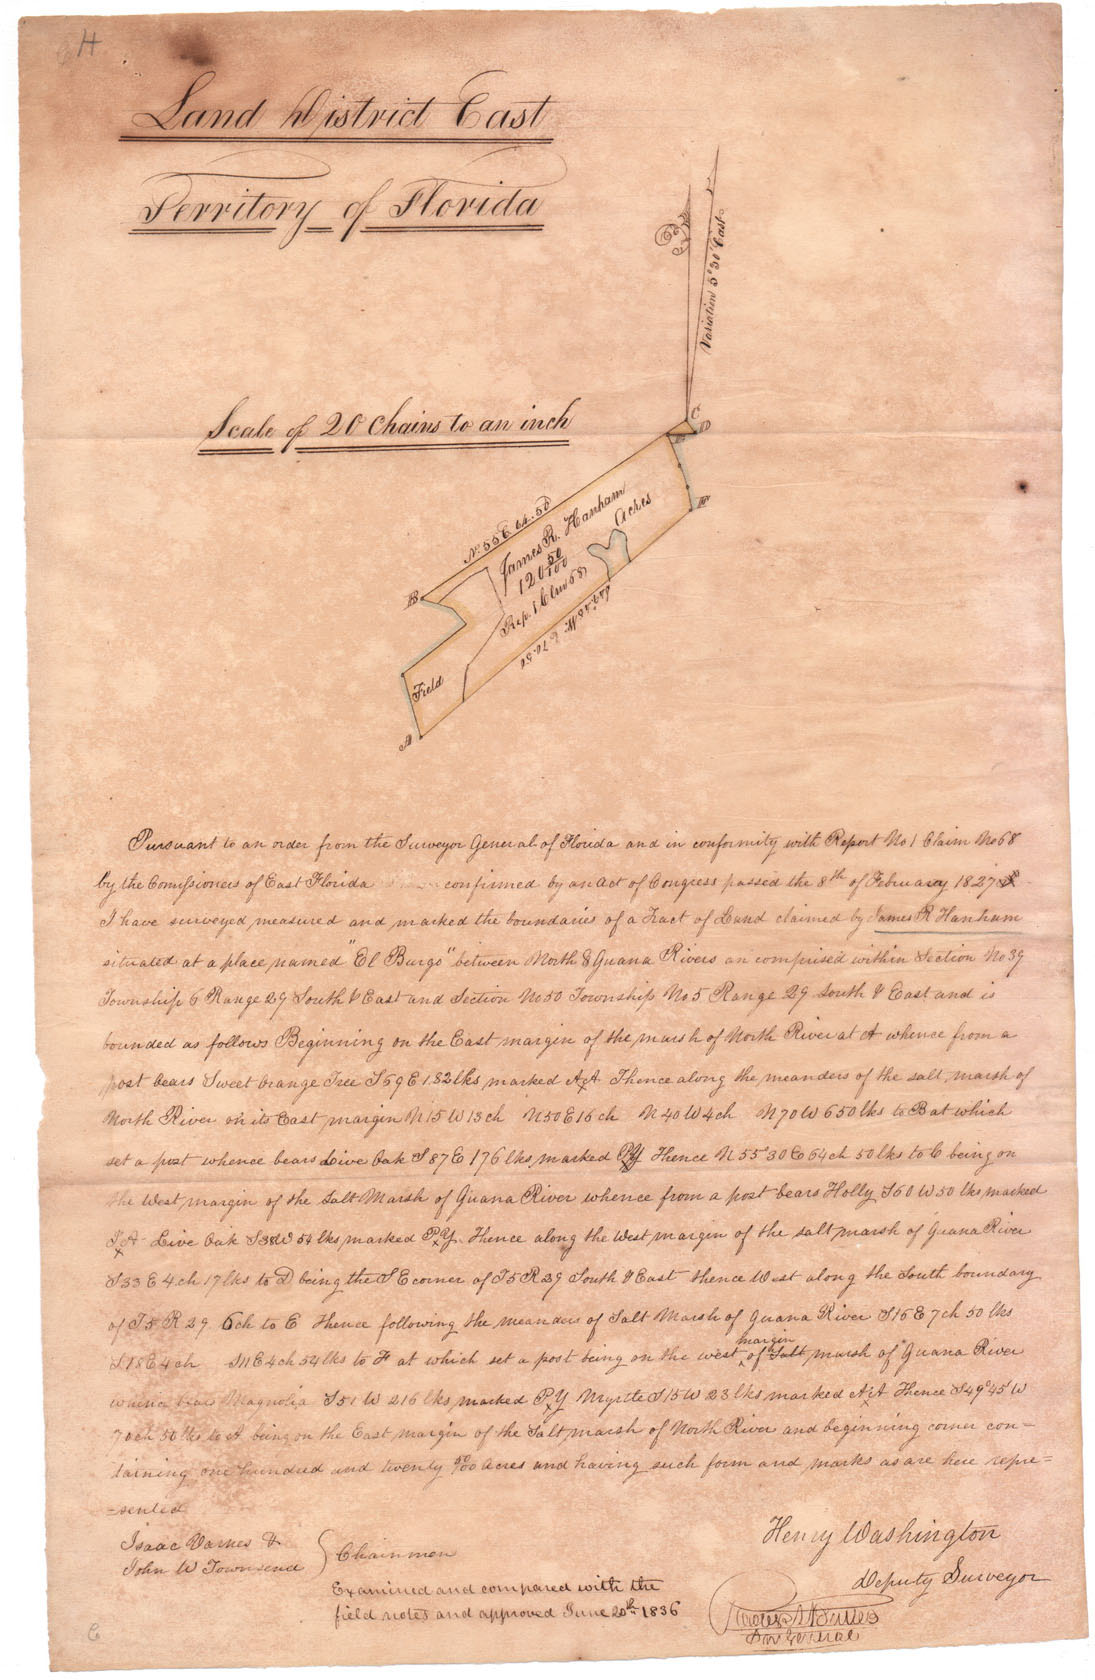 H
Land District East
Territory of Florida
Variation 5° 30' East
Scale of 20 Chains to an inch
C
D
E
F
N. 55 E 64. 50
James R. Hanham
120 50/100 Acres
Rep. 1 Clm 68
B
70. 50
Field
A
Pursuant to an order from the Surveyor General of Florida and in conformity with Report No 1 Claim No 68
by the Comissioners of East Florida confirmed by an act of Congress passed the 8th of February 1827
I have surveyed measured and marked the boundaries of a Tract of Land claimed by James R Hanham
situated at a place named "El Burgo" between North & Guana Rivers an comprised within Section No 39
Township 6 Range 29 South & East and Section No 50 Township No 5 Range 29 South & East and is
bounded as follows Beginning on the East margin of the marsh of North River at A whence from a
post bears Sweet Orange Tree S 59 E 182 lks marked AxA Thence along the meanders of the salt marsh of
North River on its East margin N 15 W 13 ch N 50 E 16 ch N 40 W 4 ch N 70 W 650 lks to B at which
set a post whence bears Live Oak S 87 E 176 lks marked PxY Thence N 55° 30 E 64 ch 50 lks to C being on
the West margin of the Salt Marsh of Guana River whence from a post bears Holly S 60 W 50 lks marked
Live Oak 54 lks marked PxY. Thence along the West margin of the salt marsh of Guana River
S 33 E 4 ch 17 lks to D being the S E corner of T 5 R 29 South & East thence West along the South boundary
of T 5 R 29. 6 ch to E thence following the meanders of Salt Marsh of Guana River S 16 E 7 ch 50 lks
S 18 E 4 ch S 11 E 4 ch 54 lks to F at which set a post being on the west margin of Salt marsh of Guana River
whence bears Magnolia S 51 W 216 lks marked PxY Myrtle S 15 W 23 lks marked AxA Thence S 49° 45' W
70 ch 50 lks to A being on the East margin of the Salt marsh of North River and beginning corner con=
taining one hundred and twenty 50/100 acres and having such form and marks as are here repre=
=sented
Isaac Varnes &
John W Townsend } Chainmen
Henry Washington
Deputy Surveyor
Examined and compared with the
field notes and approved June 20th 1836
Sur General
C